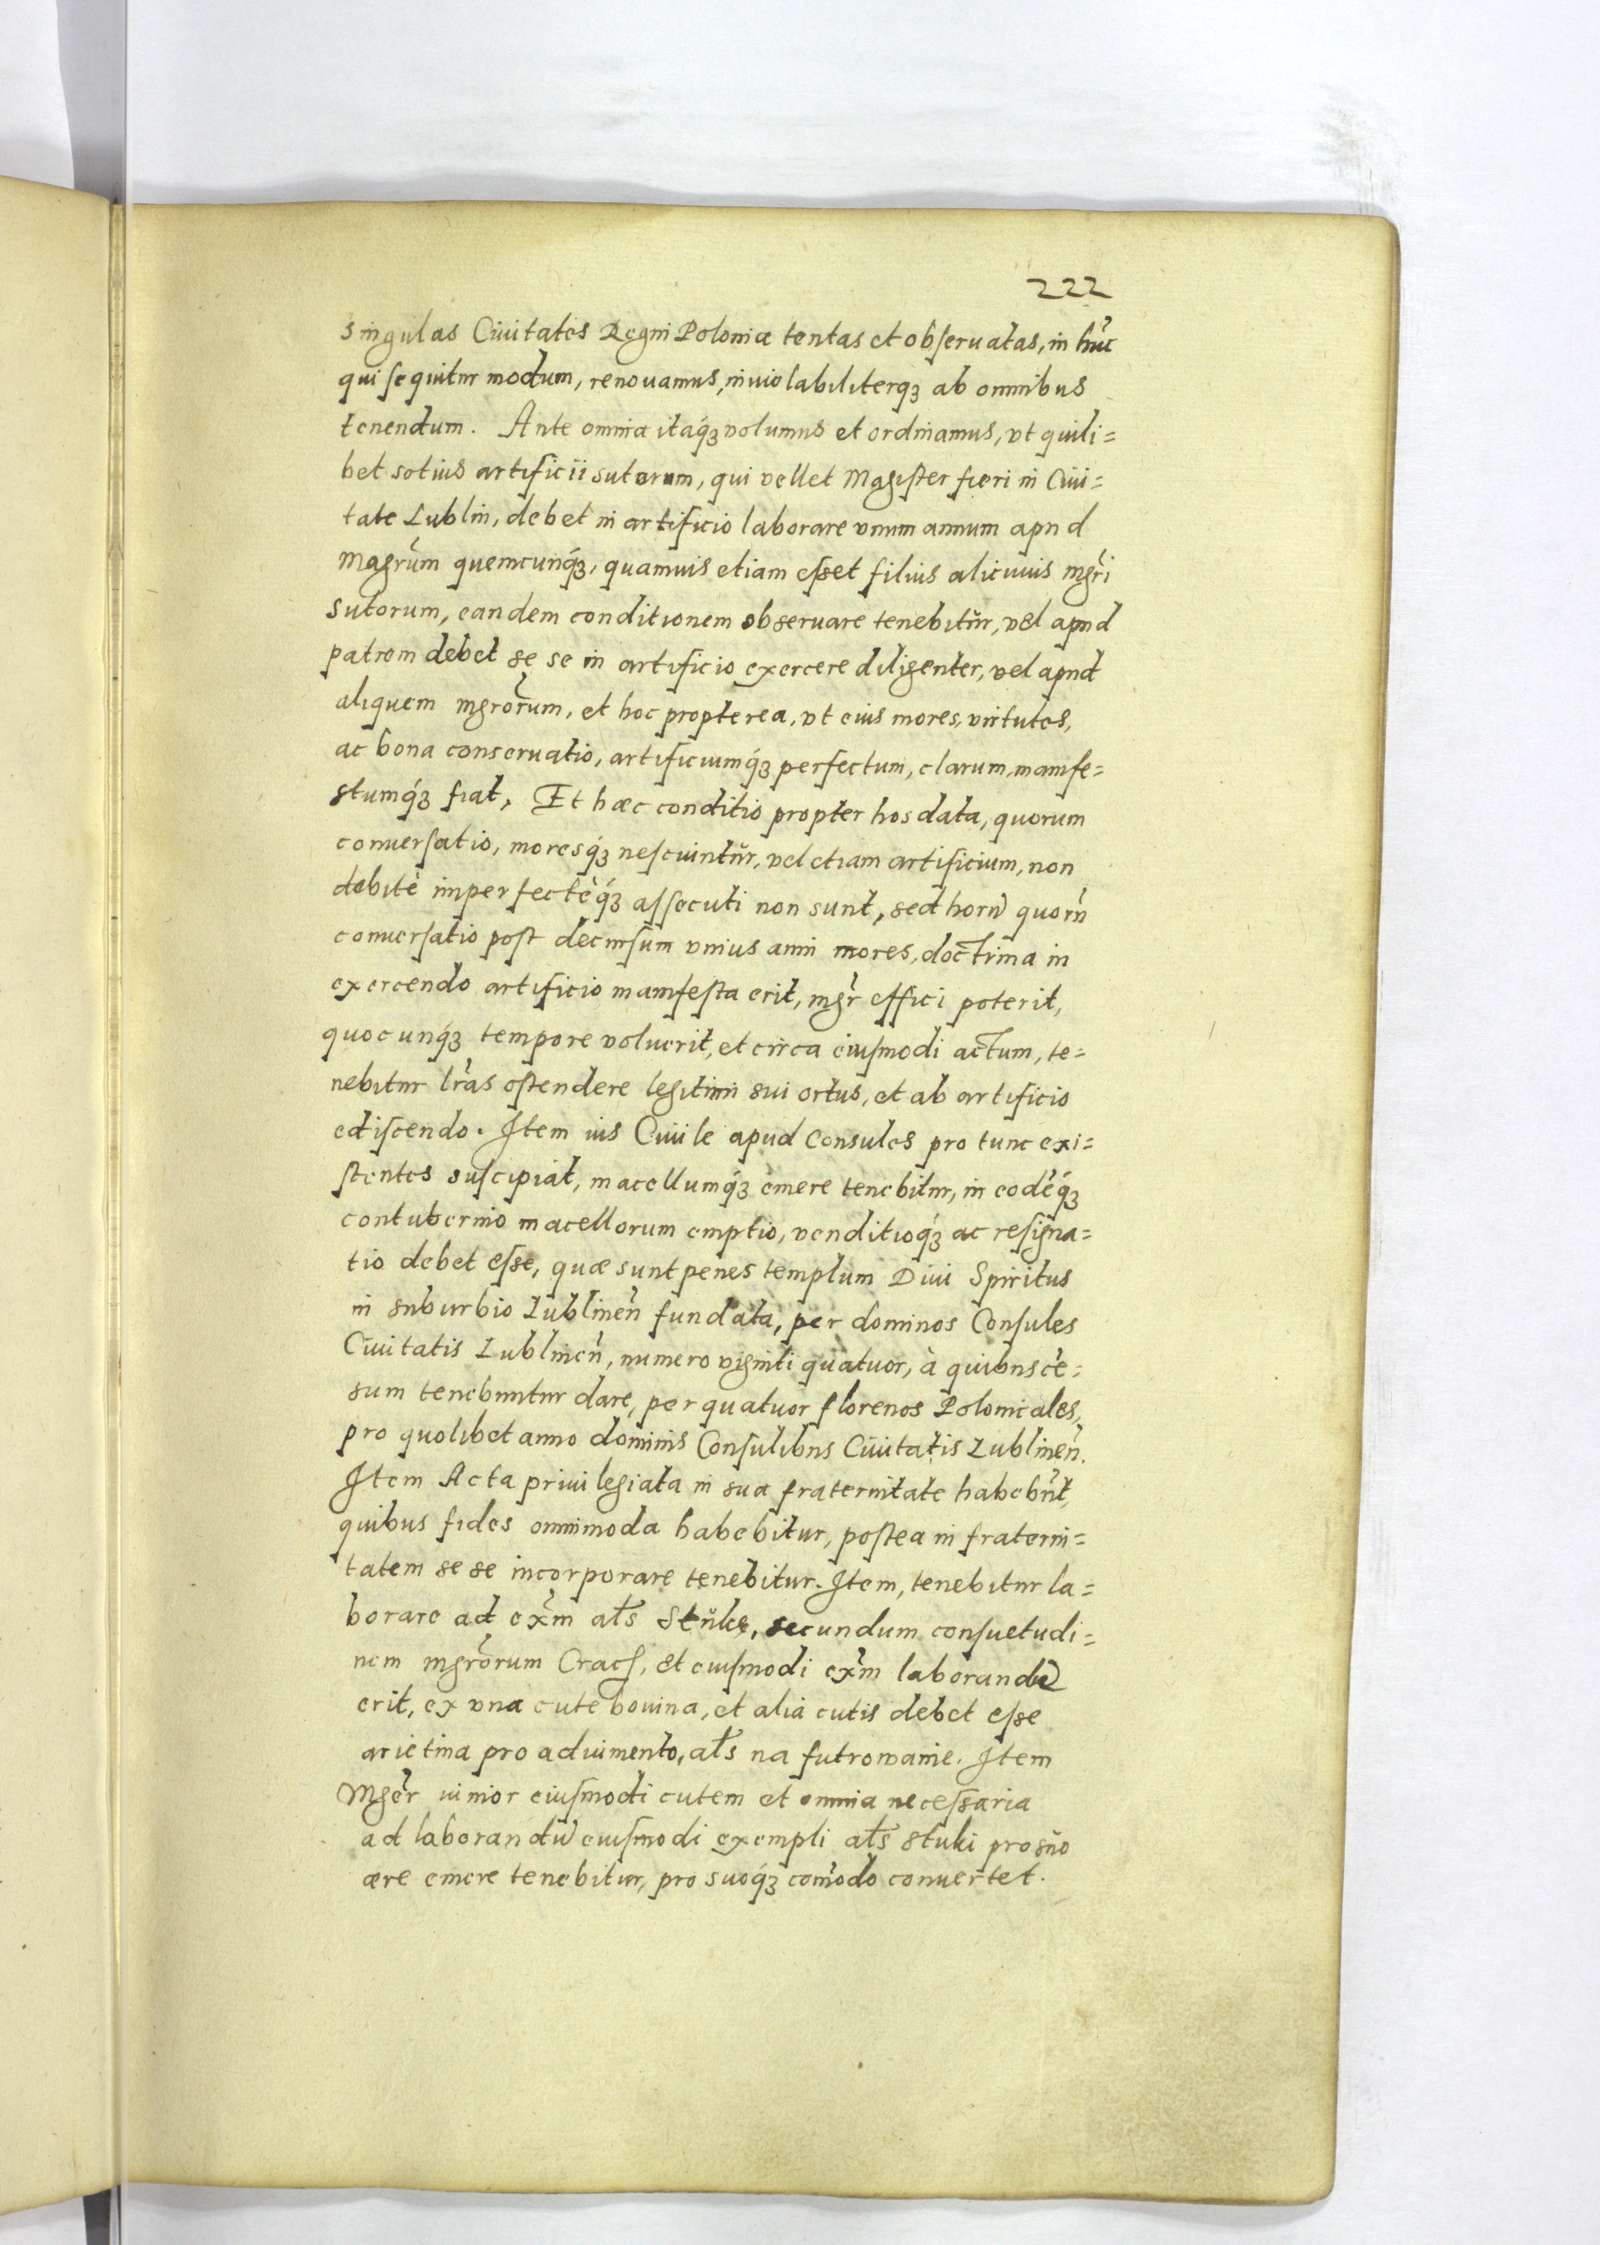 222
singulas Ciuitates Regni Poloniæ tentas et obseruatas, in hũc
qui sequitur modum, renouamus, inuiolabiliterq́ꝫ ab omnibus
tenendum. Ante omnia itaq́ꝫ volumus et ordinamus, vt quili=
bet sotius artificii sutorum, qui vellet Magister fieri in Ciui=
tate Lublin, debet in artificio laborare vnum annum apud
Magrũm quemcunq́ꝫ, quamuis etiam esset filius alicuius mgr̃i
sutorum, eandem conditionem obseruare tenebitur, vel apud
patrem debet se se in artificio exercere diligenter, vel apud
aliquem mgrõrum, et hoc propterea, vt eius mores, virtutes,
ac bona conseruatio, artificiumq́ꝫ perfectum, clarum, manife=
stumq́ꝫ fiat, Et hæc conditio propter hos data, quorum
conuersatio, moresq́ꝫ nesciuintur, vel etiam artificium, non
debitè imperfectèq́ꝫ assecuti non sunt, sed horũ quorũ
conuersatio post decursum vnius anni mores, doctrina in
exercendo artificio manifesta erit, mgr̃ effici poterit,
quocunq́ꝫ tempore voluerit, et circa eiusmodi actum, te=
nebitur lr̃as ostendere legitimi sui ortus, et ab artificio
ediscendo. Item ius Ciuile apud Consules pro tunc exi=
stentes suscipiat, macellumq́ꝫ emere tenebitur, in eodẽq́ꝫ
contubernio macellorum emptio, venditioq́ꝫ ac resigna=
tio debet esse, quæ sunt penes templum Diui Spiritus
in suburbio Lublineñ fundata, per dominos Consules
Ciuitatis Lublineñ, numero viginti quatuor, à quibus cẽ=
sum tenebuntur dare, per quatuor florenos Polonicales,
pro quolibet anno dominis Consulibus Ciuitatis Lublineñ.
Item Acta priuilegiata in sua fraternitate habebũt,
quibus fides omnimoda habebitur, postea in fraterni=
tatem se se incorporare tenebitur. Item, tenebitur la=
borare ad ex̃m ał̃s Stuke, secundum consuetudi=
nem mgrõrum Crac, et eiusmodi ex̃m laborandũ
erit, ex vna cute bouina, et alia cutis debet esse
arietina pro adiumento, ał̃s na futrowanie. Item
Mgẽr iunior eiusmodi cutem et omnia necessaria
ad laborandũ eiusmodi exempli ał̃s stuki pro suo
ære emere tenebitur, pro suoq́ꝫ com̃odo conuertet.